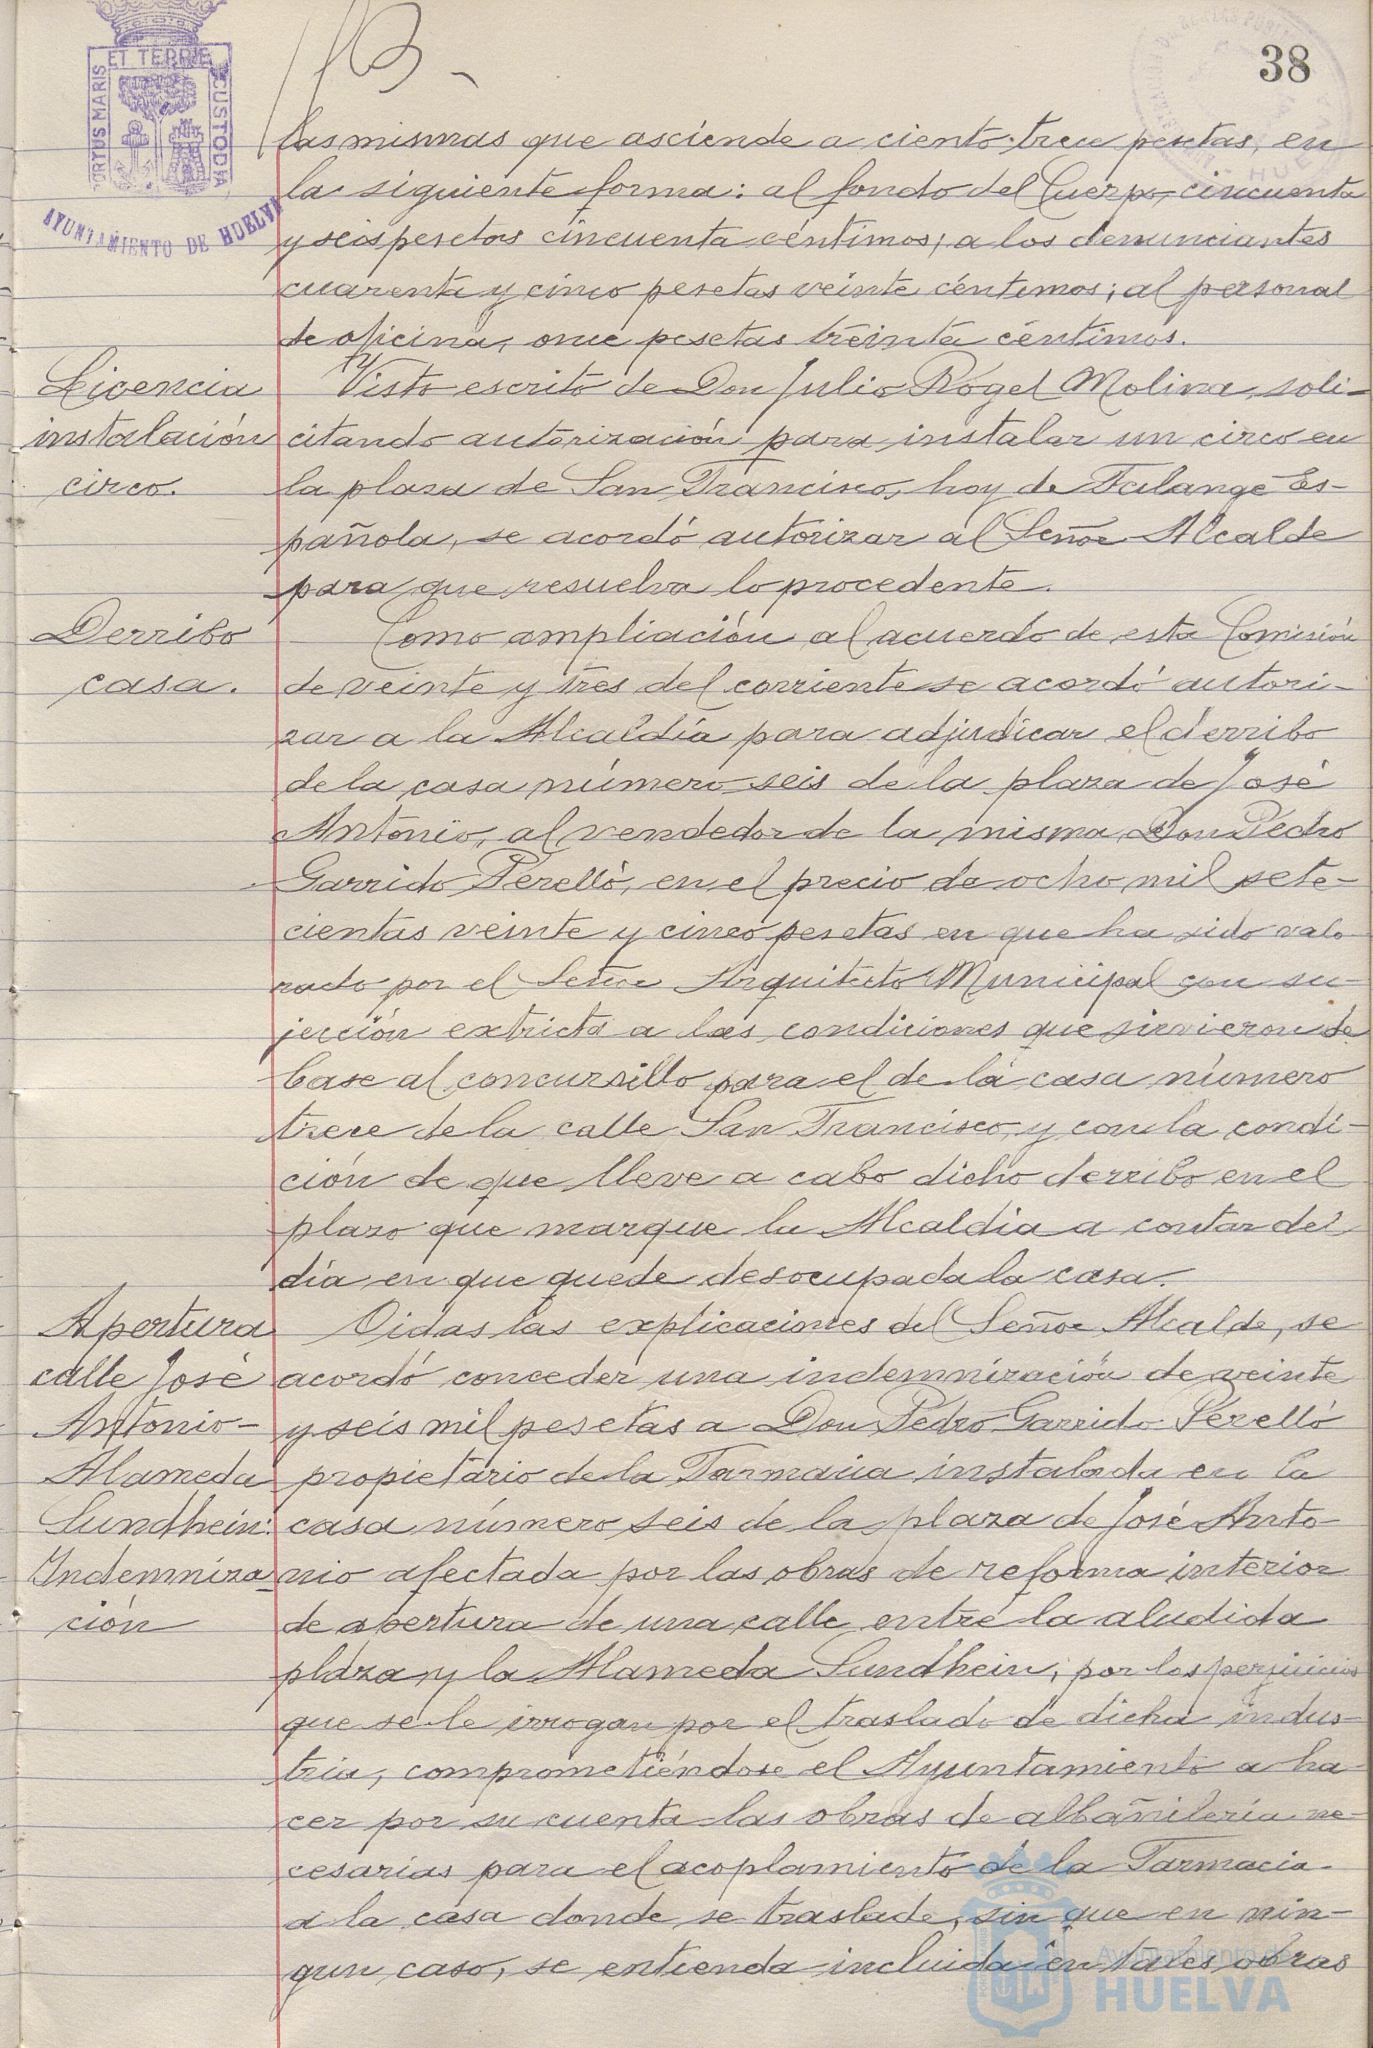 38
PORTUS MARIS ET TERRE CUSTODIA
AYUNTAMIENTO DE HUELVA
las mismas que asciende a ciento trece pesetas, en
la siguiente forma: al fondo del Cuerpo, cincuenta
y seis pesetas cincuenta céntimos; a los denunciantes
cuarenta y cinco pesetas veinte céntimos; al personal
de oficina, once pesetas treinta céntimos.
Licencia
instalación
circo.
Visto escrito de Don Julio Rogel Molina, soli-
citando autorización para instalar un circo en
la plaza de San Francisco, hoy de Falange Es-
pañola, se acordó autorizar al Señor Alcalde
para que resuelva lo procedente.
Derribo
casa.
Como ampliación al acuerdo de esta Comisión
de veinte y tres del corriente se acordó autori-
zar a la Alcaldía para adjudicar el derribo
de la casa número seis de la plaza de José
Antonio, al vendedor de la misma Don Pedro
Garrido Perelló, en el precio de ocho mil sete-
cientas veinte y cinco pesetas en que ha sido valo
rado por el Señor Arquitecto Municipal con su-
jección extricta a las condiciones que sirvieron de
base al concursillo para el de la casa número
trece de la calle San Francisco, y con la condi-
ción de que lleve a cabo dicho derribo en el
plazo que marque la Alcaldía a contar del
día en que quede desocupada la casa.
Apertura
calle José
Antonio-
Alameda
Sundhein:
Indemniza-
ción
Oidas las explicaciones del Señor Alcalde, se
acordó conceder una indemnización de veinte
y seis mil pesetas a Don Pedro Garrido Perelló
propietario de la Farmacia instalada en la
casa número seis de la plaza de José Anto-
nio afectada por las obras de reforma interior
de apertura de una calle entre la aludida
plaza y la Alameda Sundhein, por los perjuicios
que se le irrogan por el traslado de dicha indus-
tria, comprometiéndose el Ayuntamiento a ha-
cer por su cuenta las obras de albañilería ne-
cesarias para el acoplamiento de la Farmacia
a la casa donde se traslade, sin que en nin-
gun caso, se entienda incluida en tales obras
Ayuntamiento de
HUELVA